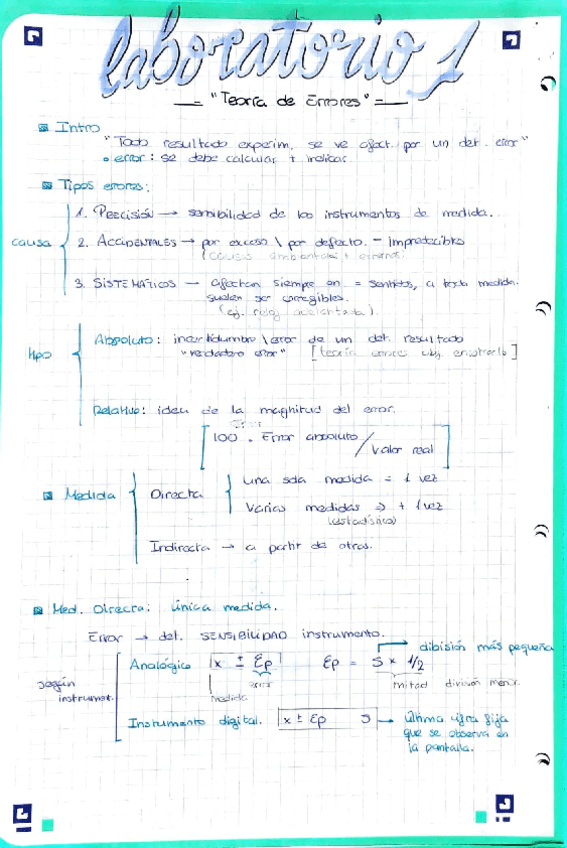 laboratorio 1
"Teoría de Errores"
Intro
"Todo resultado experim. se ve afect. por un det. error"
• error: se debe calcular + indicar
Tipos errores:
causa
1. PRECISIÓN → sensibilidad de los instrumentos de medida.
2. ACCIDENTALES → por exceso \ por defecto. - impredecibles
(causas ambientales
3. SISTEMÁTICOS → afectan siempre en = sentidos, a toda medida.
suelen ser corregibles.
(ej. reloj adelantado)
tipo
Absoluto: incertidumbre \ error de un det. resultado
"verdadero error" [teoría errores obj. encontrarlo]
Relativo: idea de la magnitud del error.
100 . Error absoluto / Valor real
Medida
Directa
una sola medida = 1 vez
Varias medidas => + 1 vez
(estadística)
Indirecta → a partir de otras.
Med. Directa: única medida.
Error → det. SENSIBILIDAD instrumento.
dibisión más pequeña
según instrumet.
Analógico x ± Ep Ep = S × 1/2
error
medida
mitad división menor.
Instrumento digital. x ± Ep S → última cifra fija
que se observa en
la pantalla.